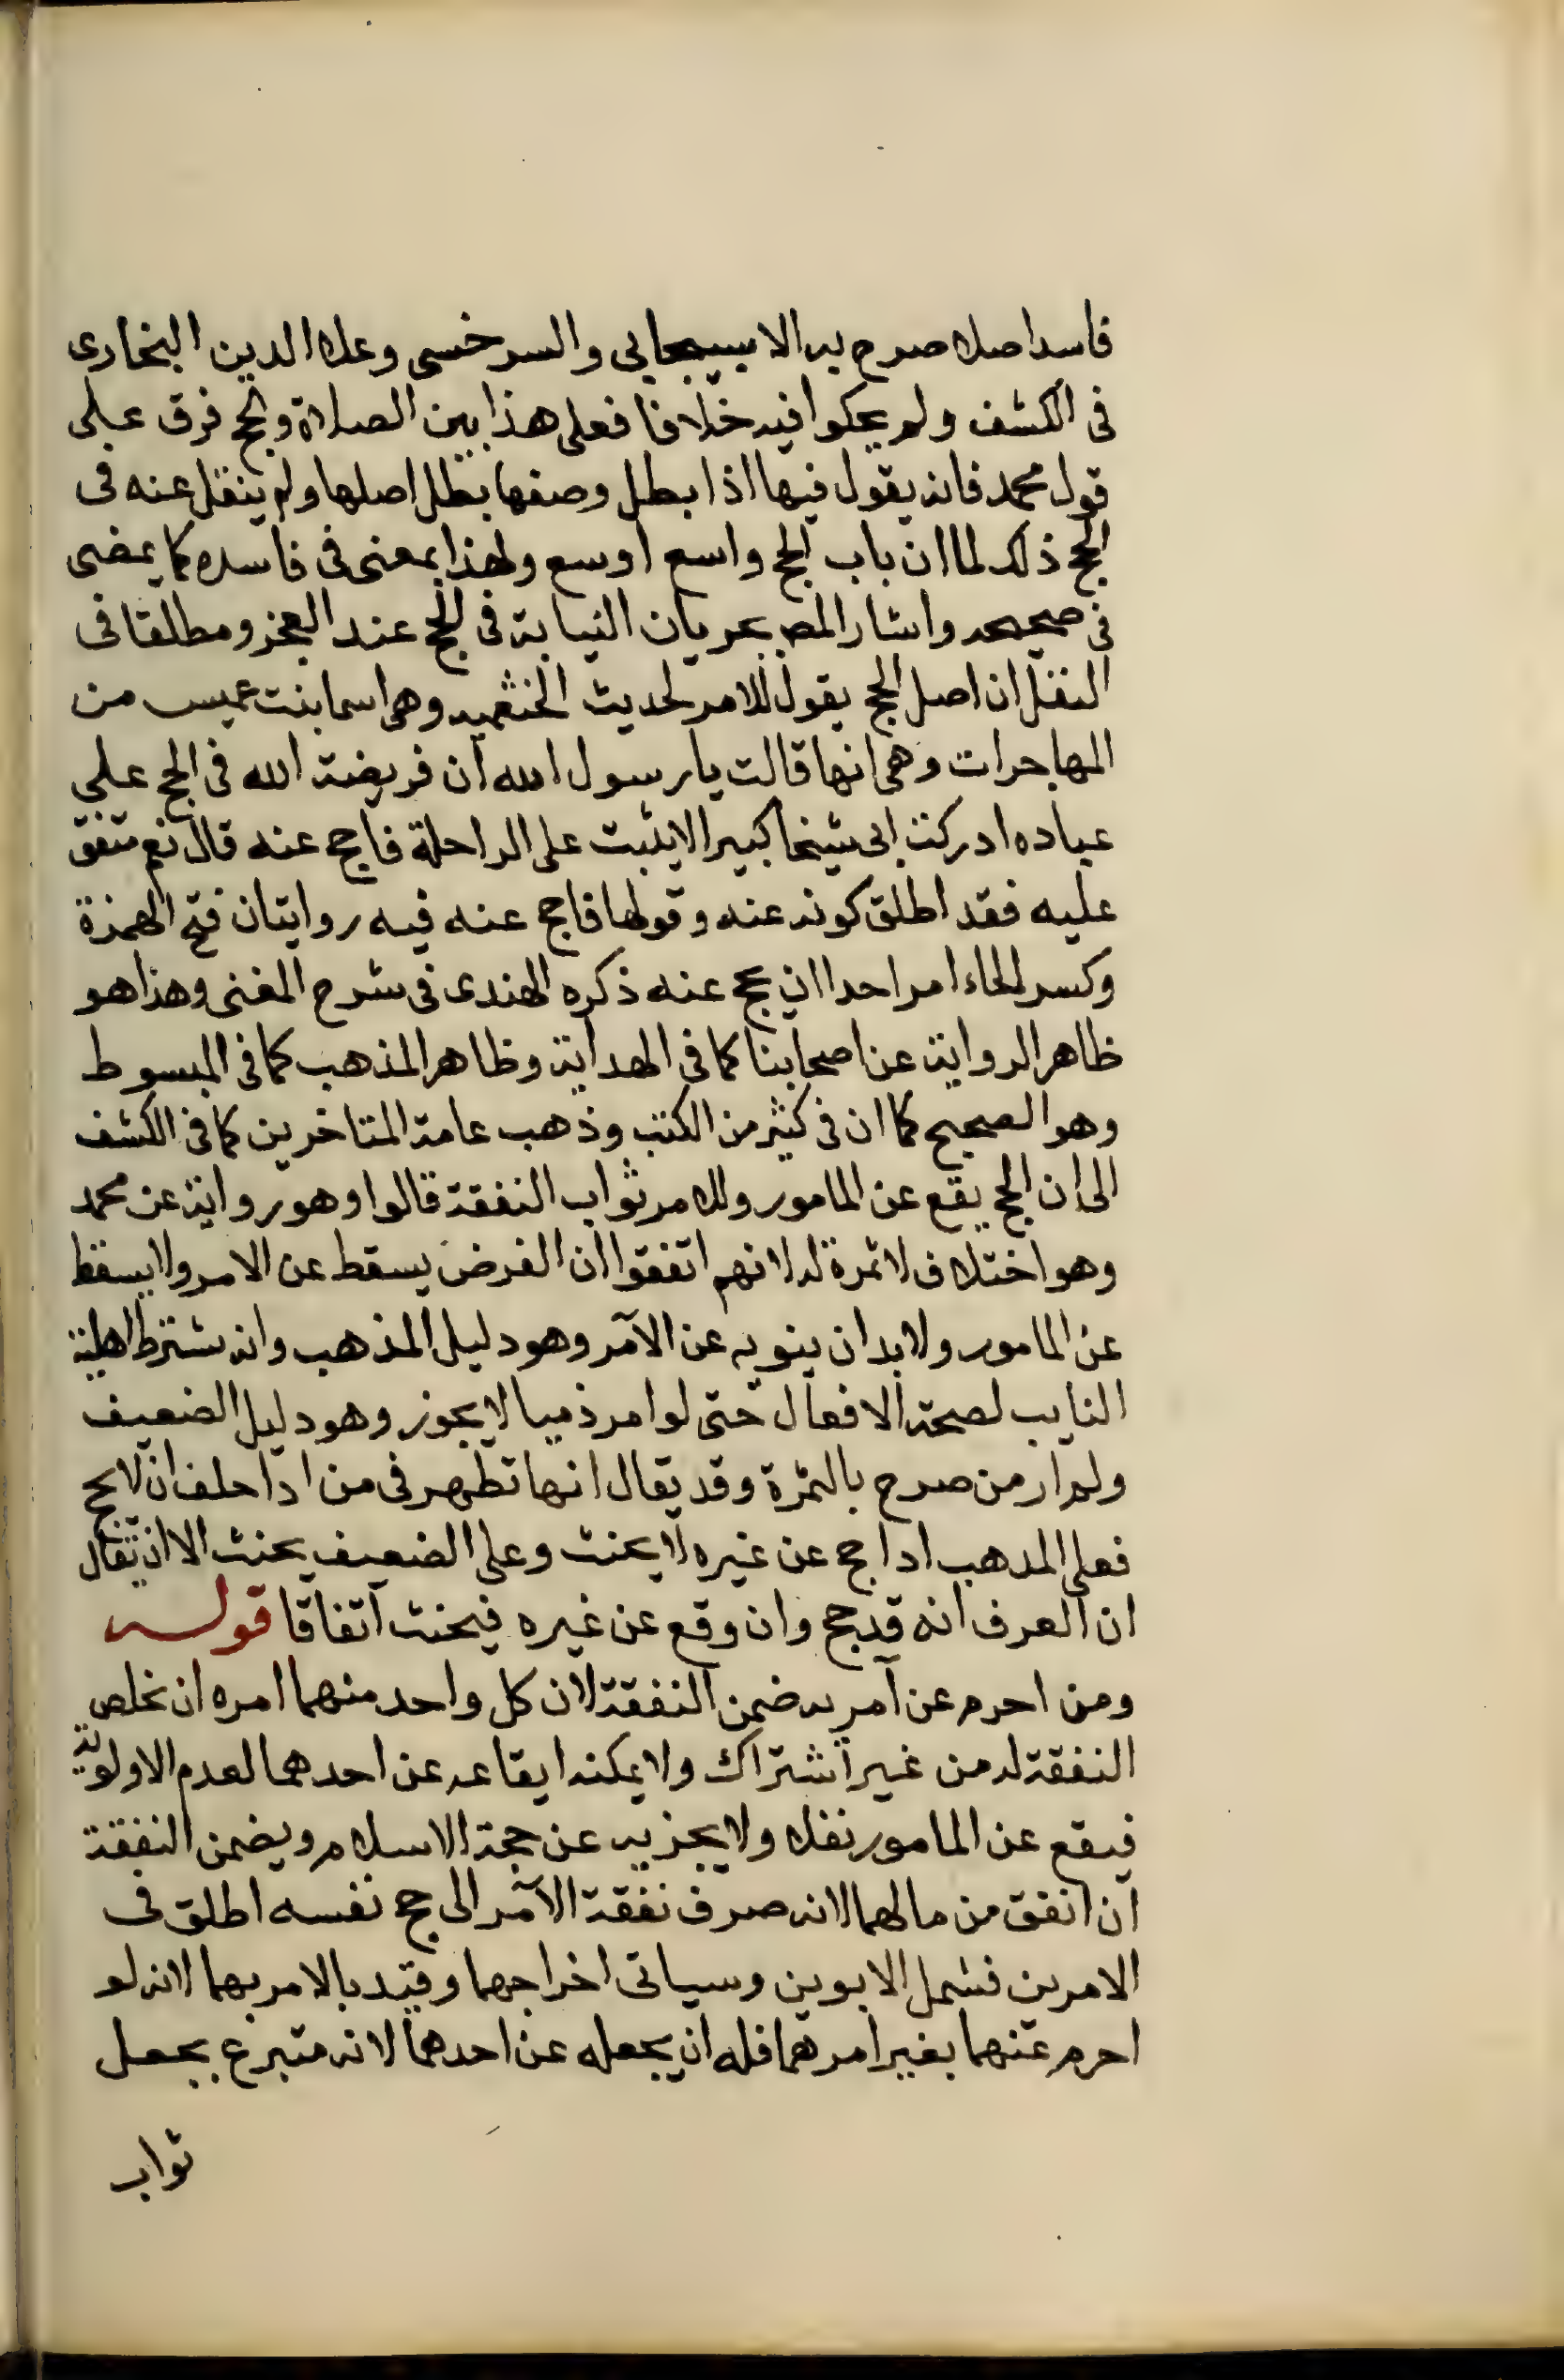 فاسد اصله صرح به الاسبيجابي والسرخسي وعلاء الدين البخارى
فى الكشف ولم يحكوا فيه خلافا فعلى هذا بين الصلاة والحج فرق على
قول محمد فانه يقول فيها اذا بطل وصفها بطل اصلها ولم ينقل عنه فى
الحج ذلك لما ان باب الحج واسع اوسع ولهذا يمضى فى فاسده كما يمضى
فى صحيحه واشار المص بجريان النيابة فى الحج عند العجز ومطلقا فى
النفل ان اصل الحج يقول للامر لحديث الخثعميه وهى اسما بنت عميس من
المهاجرات وهى انها قالت يا رسول الله ان فريضة الله فى الحج على
عباده ادركت ابى شيخا كبيرا لا يثبت على الراحلة فاحج عنه قال نعم متفق
عليه فقد اطلق كونه عنه وقولها فاحج عنه فيه روايتان فتح الهمزة
وكسر الحاء امر احدا ان يحج عنه ذكره الهندى فى شرح المغنى وهذا هو
ظاهر الرواية عن اصحابنا كما فى الهداية وظاهر المذهب كما فى المبسوط
وهو الصحيح كما ان فى كثير من الكتب وذهب عامة المتاخرين كما فى الكشف
الى ان الحج يقع عن المامور وللامر ثواب النفقة قالوا وهو رواية عن محمد
وهو اختلاف لا ثمرة له لانهم اتفقوا ان الفرض يسقط عن الامر ولا يسقط
عن المامور ولا بد ان ينويه عن الآمر وهو دليل المذهب وانه يشترط اهلية
النايب لصحة الافعال حتى لو امر ذميا لا يجوز وهو دليل الضعيف
ولم ار من صرح بالثمرة وقد يقال انها تظهر فى من اذا حلف ان لا يحج
فعلى المذهب اذا حج عن غيره لا يحنث وعلى الضعيف يحنث الا ان يقال
ان العرف انه قد حج وان وقع عن غيره فيحنث اتفاقا قوله
ومن احرم عن آمريه ضمن النفقة لان كل واحد منهما امره ان يخلص
النفقة له من غير اشتراك ولا يمكنه ايقاعه عن احدهما لعدم الاولوية
فيقع عن المامور نفلا ولا يجزيه عن حجة الاسلام ويضمن النفقة
ان انفق من مالهما لانه صرف نفقة الآمر الى حج نفسه اطلق فى
الامرين فشمل الابوين وسياتى اخراجهما وقيد بالامر بهما لانه لو
احرم عنهما بغير امرهما فله ان يجعله عن احدهما لانه متبرع بجعل
ثواب